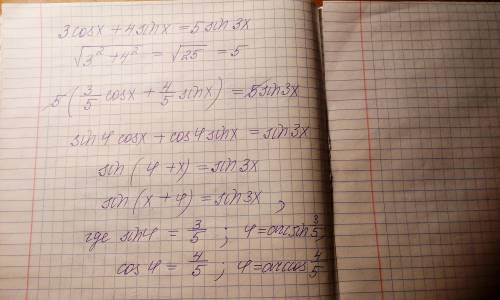 3cosx + 4sinx = 5sin3x
√3² + 4² = √25 = 5
5(3/5 cosx + 4/5 sinx) = 5sin3x
sinφ cosx + cosφ sinx = sin3x
sin(φ + x) = sin3x
sin(x + φ) = sin3x,
где sinφ = 3/5; φ = arcsin 3/5,
cosφ = 4/5; φ = arccos 4/5